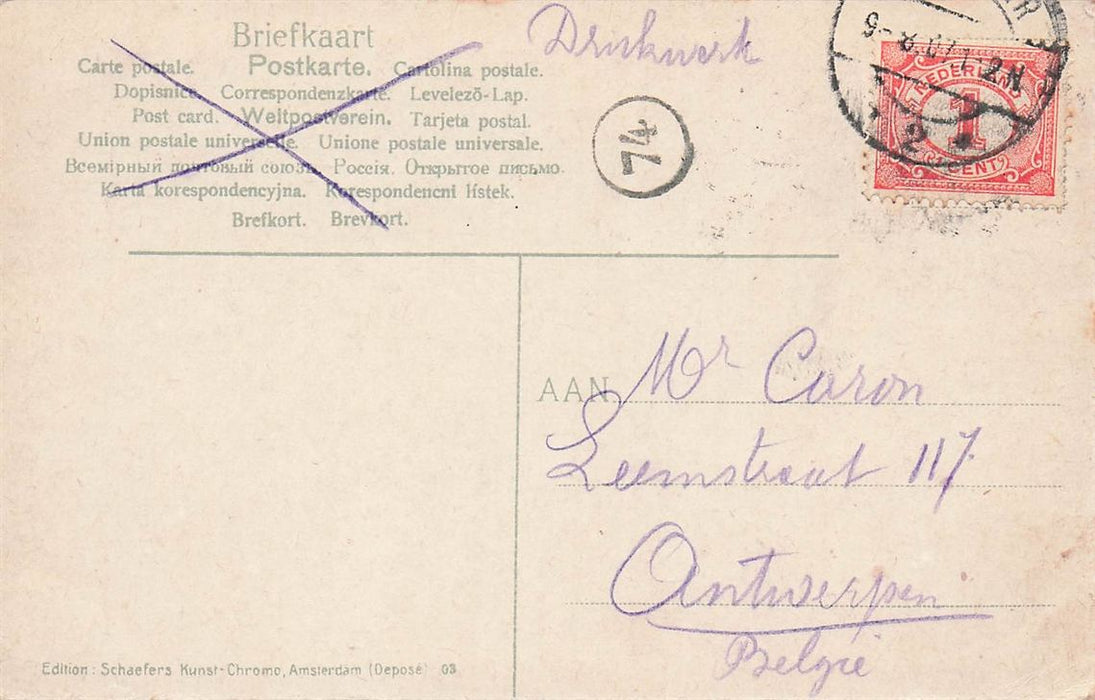 Briefkaart
Drukwerk
Carte postale. Postkarte. Cartolina postale.
Dopisnice. Correspondenzkarte. Levelező-Lap.
Post card. Weltpostverein. Tarjeta postal.
Union postale universelle. Unione postale universale.
Всемірный почтовый союзъ. Россія. Открытое письмо.
Karta korespondencyjna. Korespondencni lístek.
Brefkort. Brevkort.
74
R
9-8.07 1-2N
2
NEDERLAND
1
CENT
AAN Mr Caron
Leemstraat 117
Antwerpen
België
Edition: Schaefers Kunst-Chromo, Amsterdam (Deposé) 03